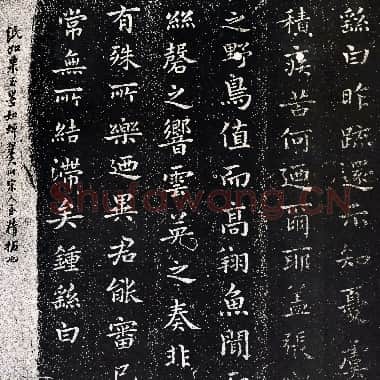 繇白昨疏還示知憂虞
積疾苦何迺爾耶蓋張
之野鳥值而高翔魚聞而
絲磬之響雲英之奏非
有殊所樂迺異君能審己
常無所結滯矣鍾繇白
Shufawang.CN